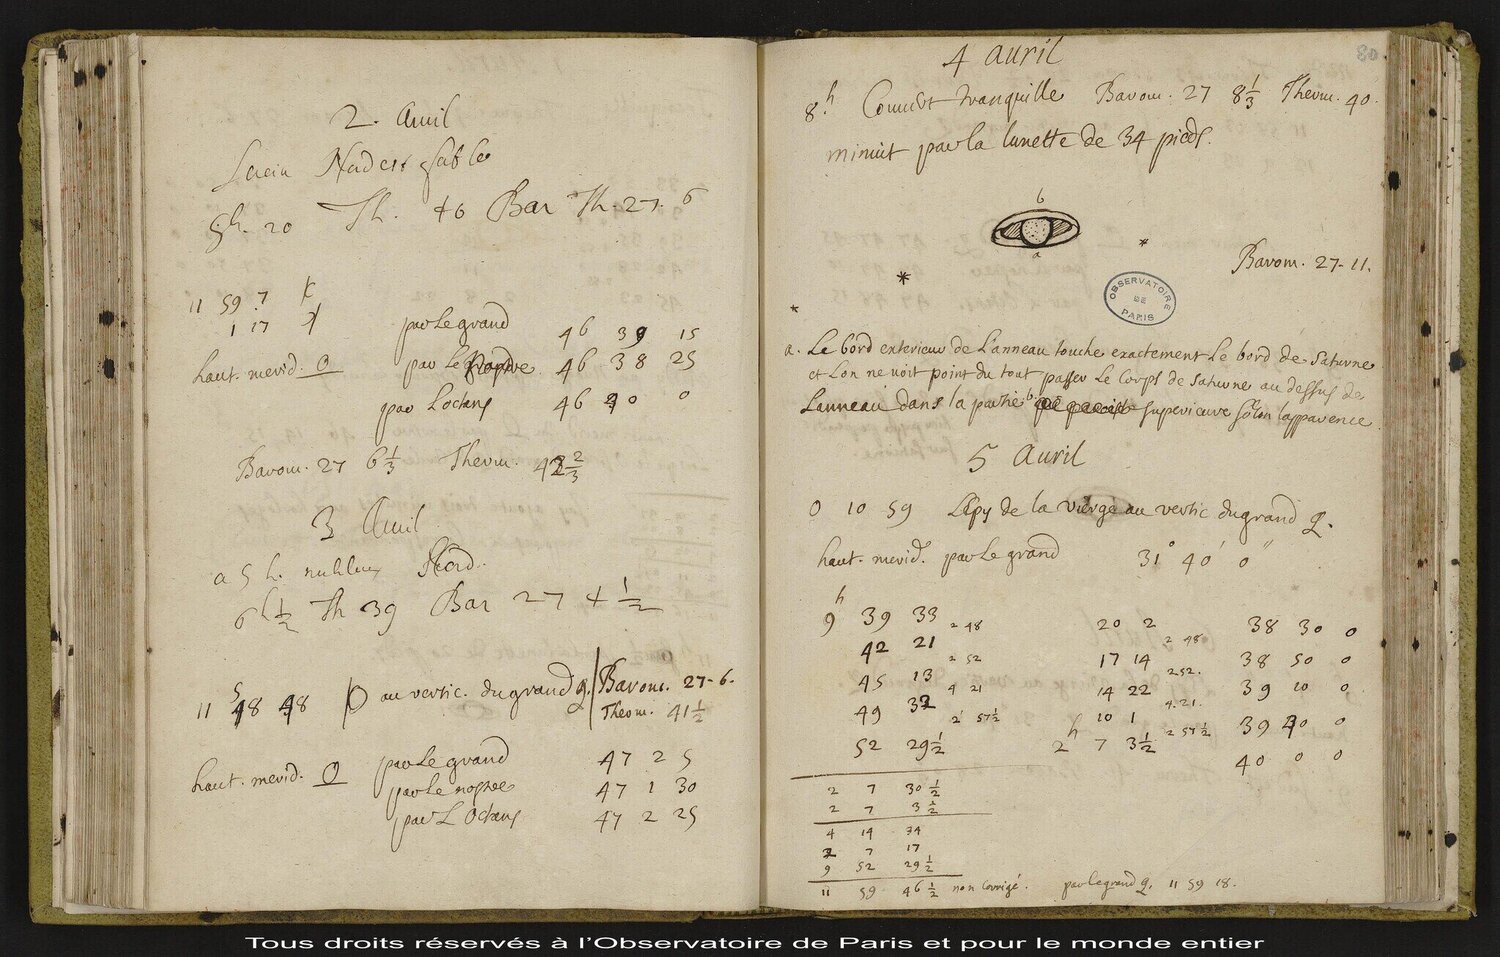 2. Auril
Serein Nord est foible
5h. 20 Th. 46 Bar 27. 6
11 59 7
1 17
par Le grand 46 39 15
haut. merid. O par Le 46 38 25
par Loctans 46 40 0
Barom. 27 6 1/3 Therm. 42 2/3
3 Auril
a 5 h. Nord.
6h 1/2 Th 39 Bar 27 4 1/2
11 58 48 au vertic. du grand q. Barom. 27-6.
Therm. 41 1/2
par Le grand 47 2 5
haut. merid. O par Le 47 1 30
par L Octans 47 2 25
80
4 auril
8h. Couuert tranquille Barom. 27 8 1/3 Therm. 40.
minuit par la lunette de 34 pieds.
b
a
Barom. 27-11.
OBSERVATOIRE
DE
PARIS
a. Le bord exterieur de L'anneau touche exactement Le bord de Saturne
et Lon ne uoit point du tout passer Le Corps de Saturne au dessus de
Lanneau dans la partie b. superieure selon lapparence.
5 auril
0 10 59 Lepy de la vierge au vertic du grand q.
haut. merid. par Le grand 31° 40' 0"
9h 39 33 20 2 38 30 0
2 48 2 48
42 21 17 14 38 50 0
2 52 2 52.
45 13 14 22 39 10 0
4 21 4.21.
49 32 10 1 39 40 0
2 57 1/2 2 57 1/2
52 29 1/2 2h 7 3 1/2 40 0 0
2 7 30 1/2
2 7 3 1/2
4 14 34
2 7 17
9 52 29 1/2
11 59 46 1/2 non Corrigé. par Le grand q. 11 59 18.
Tous droits réservés à l'Observatoire de Paris et pour le monde entier